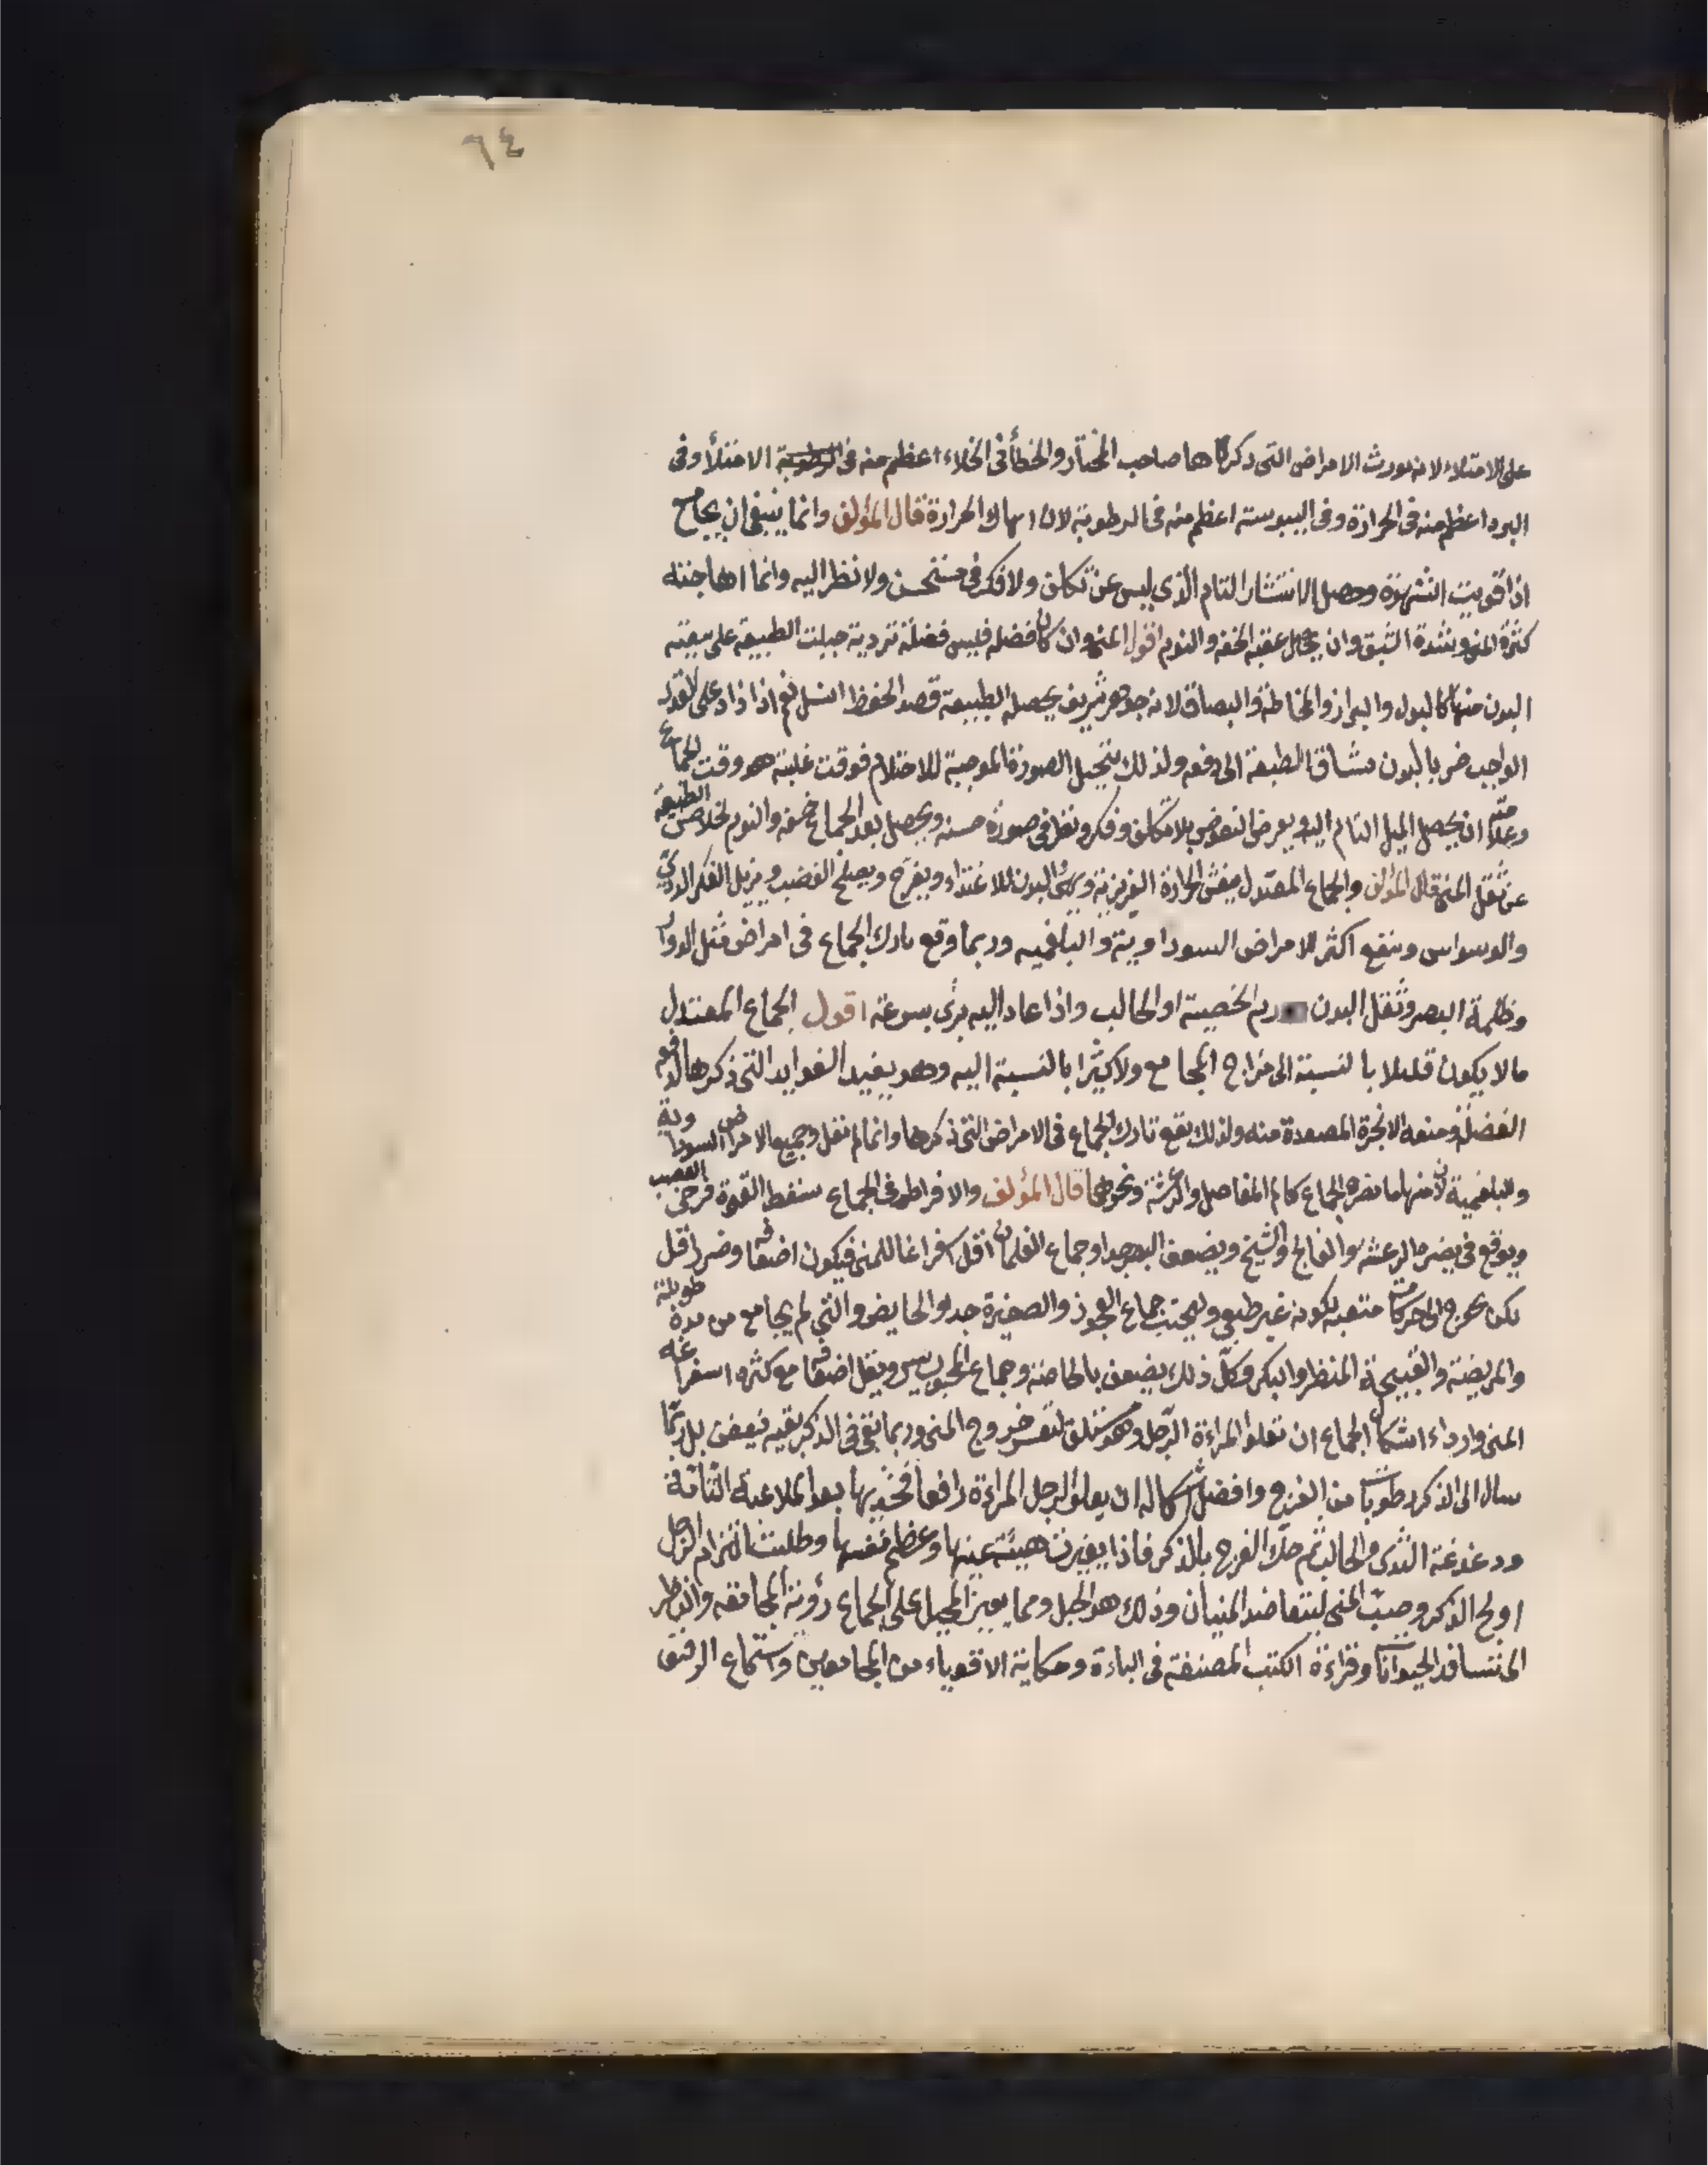 ٦٤
على الامتلاء لانه يورث الامراض التى ذكرناها صاحب المختار والخطأ فى الخلاء اعظم منه فى الامتلأ وفى
البرد اعظم منه فى الحرارة وفى اليبوسته اعظم منه فى الرطوبة لان اسهال الحرارة قال المؤلف وانما ينبغى ان يجامح
اذا قويت الشهوة وحصل الانتشار التام الذى ليس عن تكلف ولا فكر فى مستحسن ولا نظر اليه وانما اهاجته
كثرة المنى وشدة الشبق وان يحصل عقبه الخفه والنوم اقول المنى وان كان فضله فليس فضلة جبلت الطبيعة على
البدن منها كالبول والبراز والمخاطة والبصاق لانه جوهر شريف يحصله الطبيعة قصد الحفظ النسل نعم اذا زاد على القدر
الواجب ضر بالبدن الطبيعة الى دفعه ولذلك يتخيل الصورة الموجبة للاحتلام فوقت غلبته هو وقت الجماع
وعلامته ان يحصل الميل التام اليه ويعرض بلا تكلف وفكر ونظر فى صورة حسنه ويحصل بعد الجماع خفه والنوم لخلاص الطبيعة
عن ثقل المنى قال المؤلف والجماع المعتدل ينعش الحرارة الغريزية ويهئ البدن للاغتذاء ويفرح ويصلح الغضب ويزيل الفكر الردئ
والوسواس وينفع اكثر الامراض السوداوية والبلغميه وربما وقع تارك الجماع فى امراض مثل الدوار
وظلمة البصر وثقل البدن ورم الخصيته او الحالب واذا عاد اليه برئ بسرعة اقول الجماع المعتدل
ما لا يكون قليلا بالنسبة الى مزاج المجامع ولا كثيرا بالنسبة اليه وهو يفيد الفوايد التى ذكرها لدفع
الفضلة ومنعه الابخرة المصعدة منه ولذلك يقع تارك الجماع فى الامراض التى ذكرها وانما لم نقل وجميع الامراض السوداوية
والبلغمية لان منها ما يضره الجماع كالم المفاصل والرعشة ونحوها قال المؤلف والافراط فى الجماع سقط القوة العصب
ويوقع فى الرعشه والفالج والشيخ ويضعف البصر جدا وجماع الغلمان اقل استفراغا للمنى فيكون اضعافه وضرره اقل
لكنه يحوج الى حركات متعبه لكونه غير طبيعى وليجتنب جماع العجوز والصغيرة جدا والحايض والتى لم يجامع من مدة طويلة
والمريضة والقبيحة المنظر والبكر وكل ذلك يضعف بالخاصة وجماع المحبوب يسر ويقل اضعافه مع كثره استفراغه
المنى وارداء اشكال الجماع ان تعلو المراءة الرجل وهو مستلق لتعسر خروج المنى وربما بقى فى الذكر بقيه فيعفن بل ربما
سال الى الذكر رطوبات من الفرج وافضل اشكاله ان يعلو الرجل المراءة رافعا فخذيها بعد الملاعبة التامة
ودغدغة الثدى والحالب ثم حك الفرج بالذكر فاذا تغيرت هيئة عينها وعظم نفسها وطلبت التزام الرجل
اولج الذكر وصب المنى ليتعاضد المنيان وذلك هو الحبل ومما يعين على الجماع رؤية المجامعه والنظر
الى تسافد الحيوانات وقراءة الكتب المصنفة فى الباءة وحكاية الاقوياء من المجامعين واستماع الرقيق